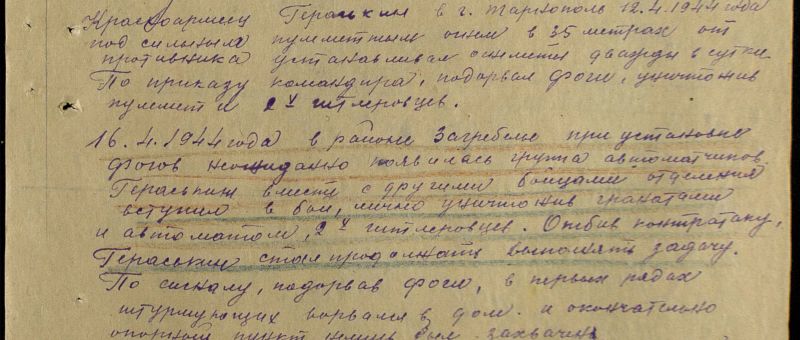 Красноармеец Гераськин в г. Тарнополь 12.4.1944 года
под сильным пулеметным огнем в 35 метрах от
противника устанавливал дважды в сутки
По приказу командира, подорвал фоги, уничтожив
пулемет и 2х гитлеровцев.
16.4.1944 года в районе Загребелье при установке
фогов неожиданно появилась группа автоматчиков.
Гераськин вместе с другими бойцами отделения
вступил в бой, лично уничтожив гранатами
и автоматом, 2х гитлеровцев. Отбив контратаку,
Гераськин стал продолжать выполнять задачу.
По сигналу, подорвав фоги, в первых рядах
штурмующих ворвался в дом. и окончательно
опорный пункт был захвачен